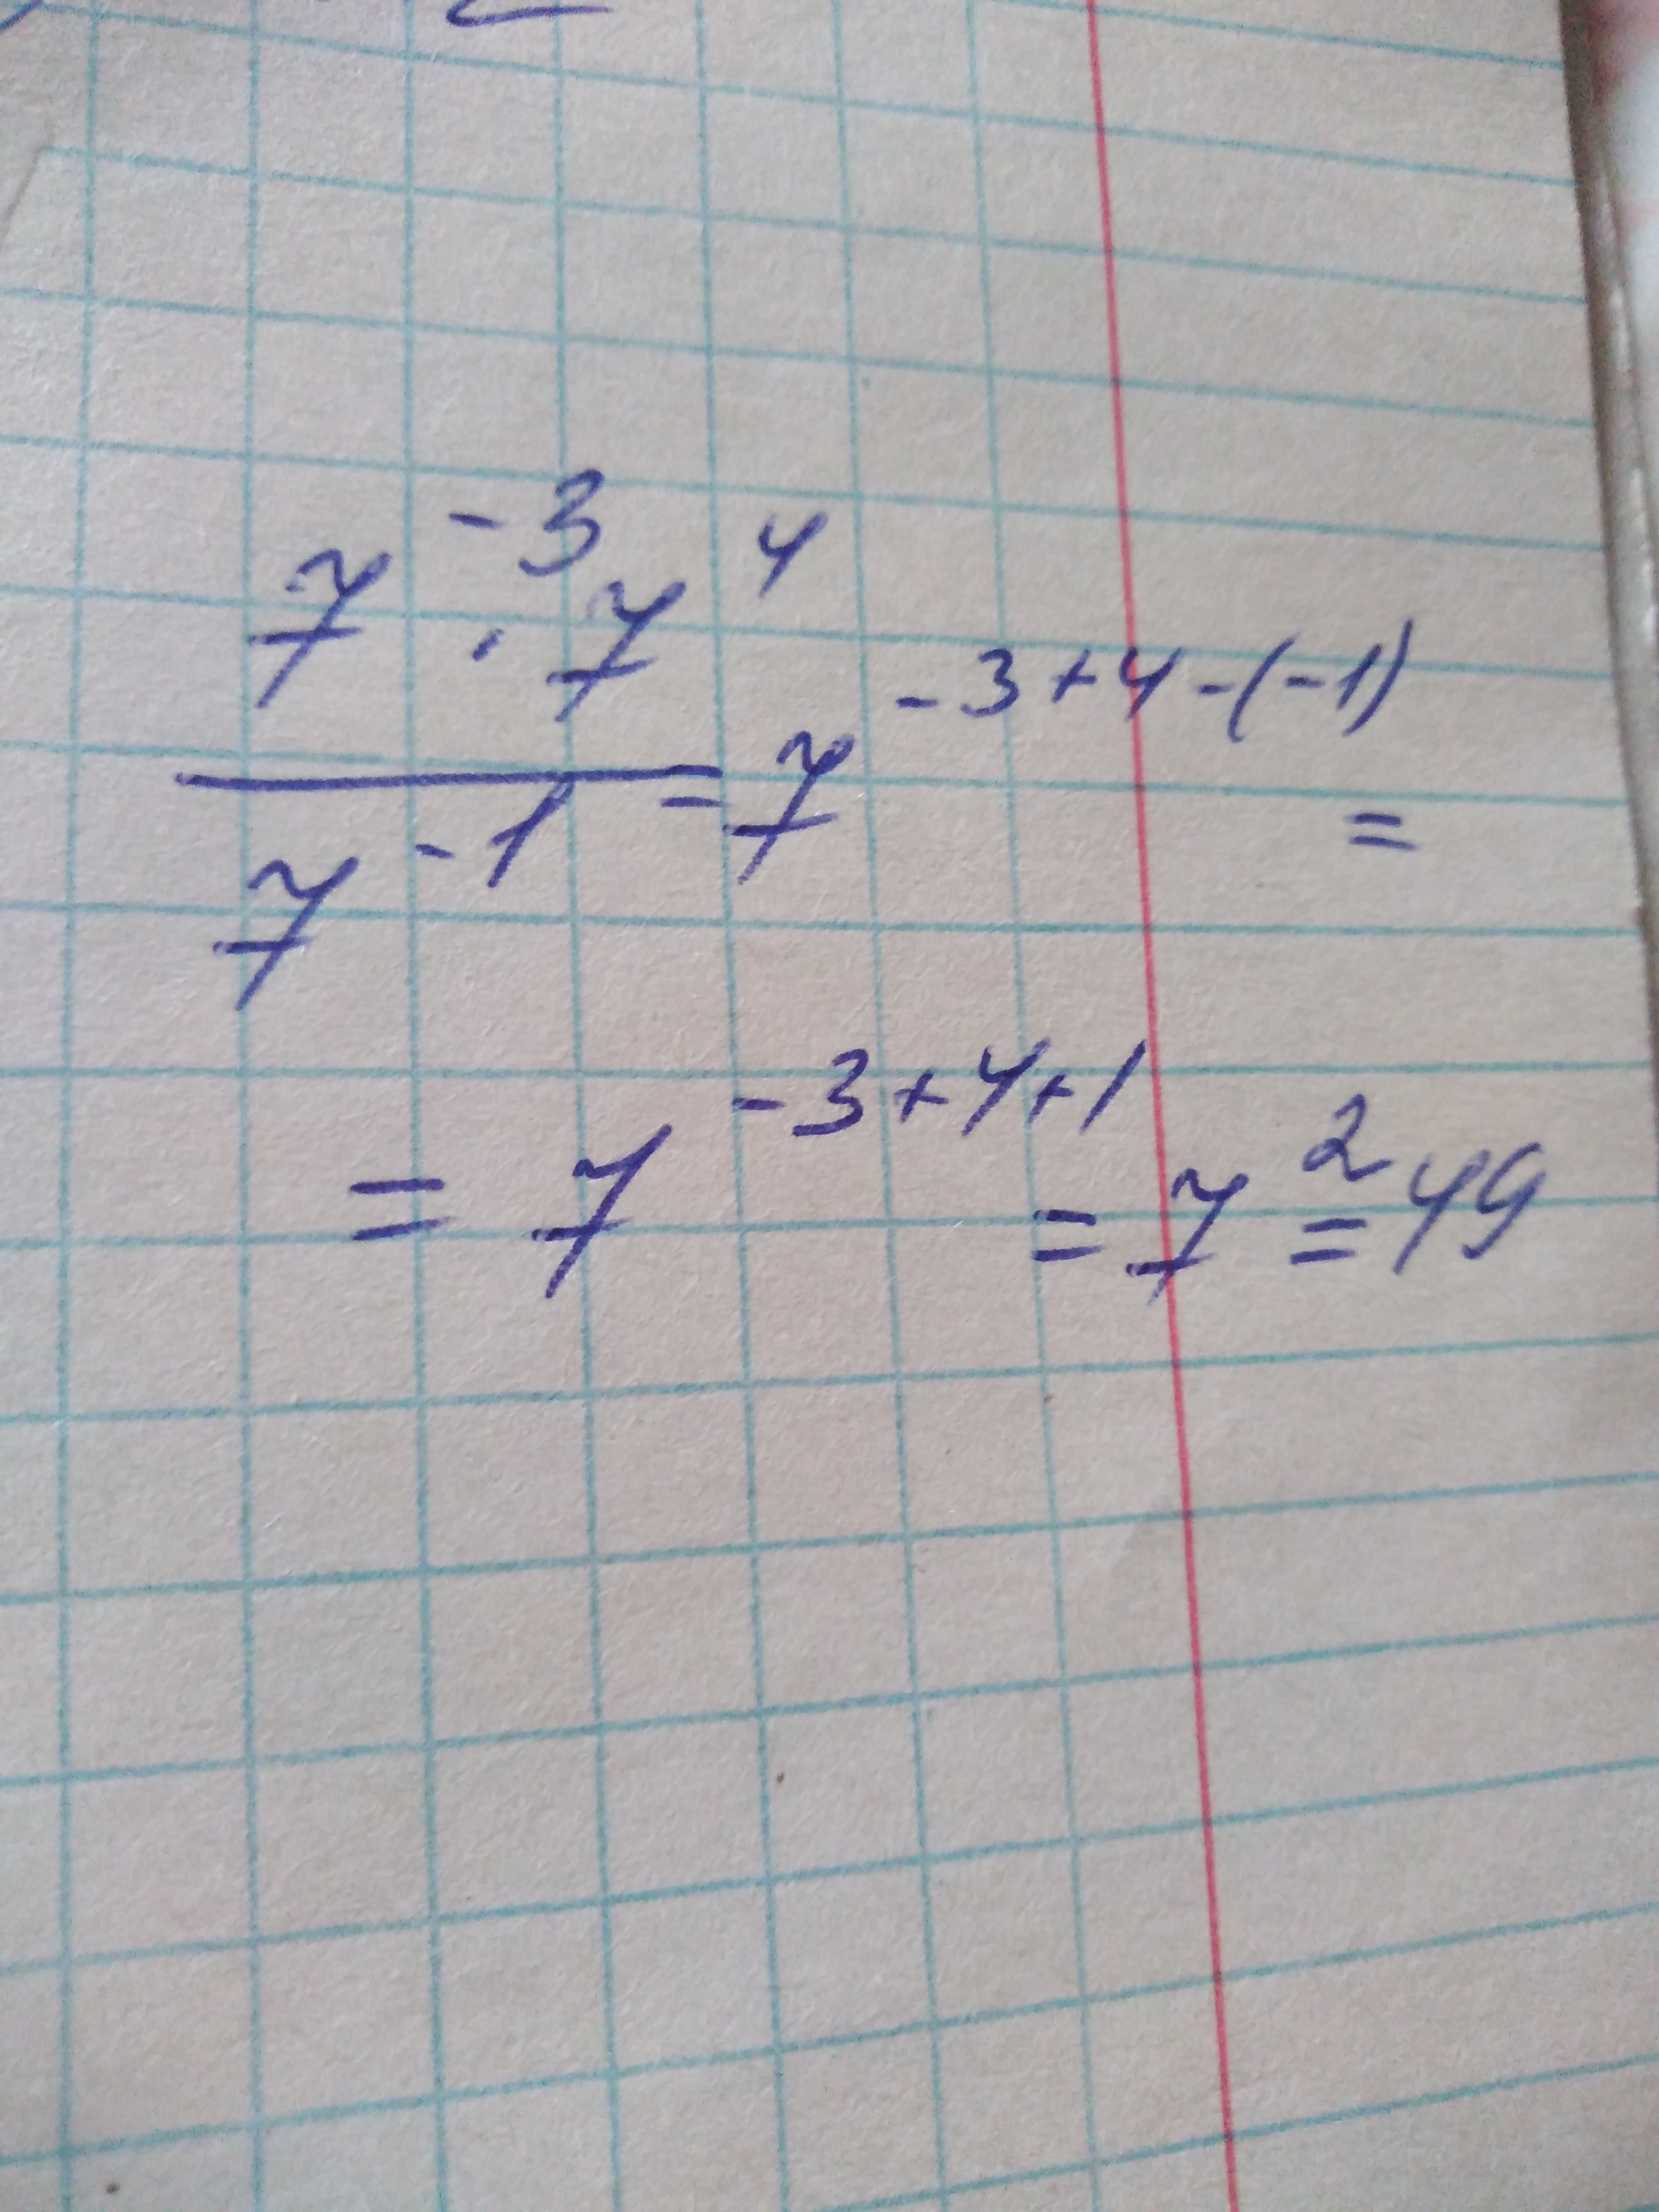 7^-3 · 7^4 / 7^-1 = 7^-3+4-(-1) =
= 7^-3+4+1 = 7^2 = 49